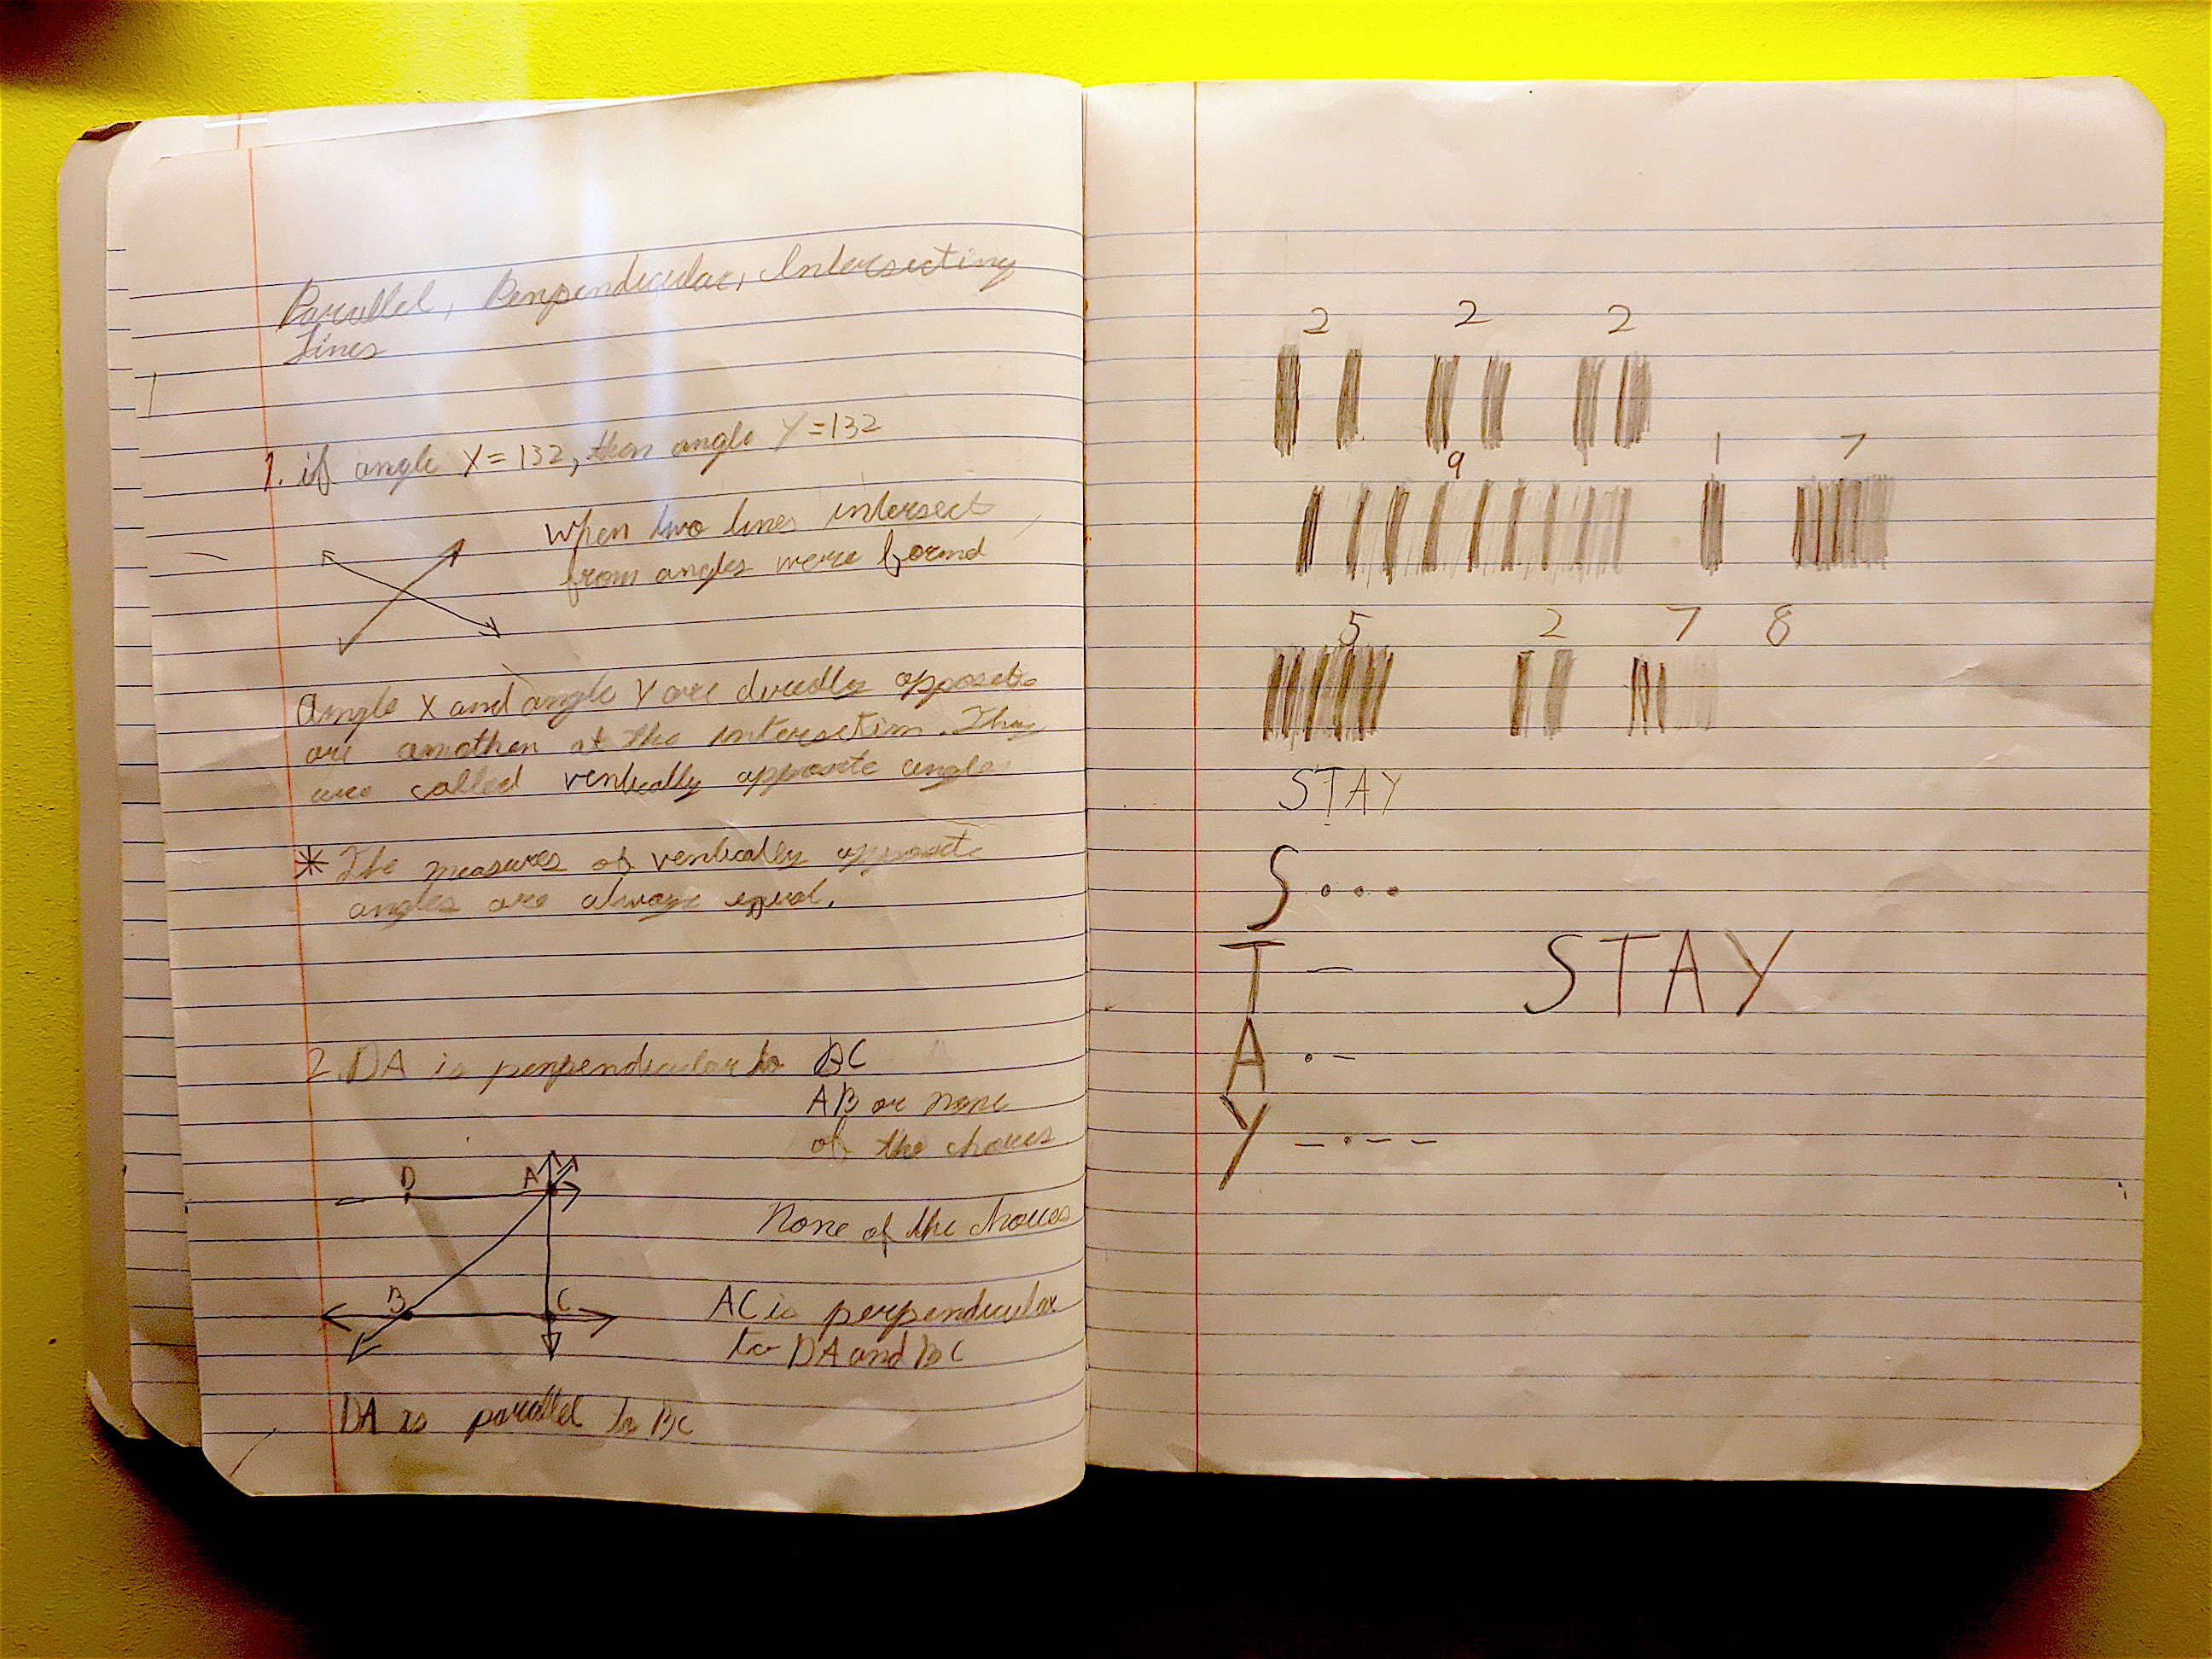 Parallel, Penpendicular, Intersecting
Lines
1. if angle X = 132, then angle Y = 132
When two lines intersect
from angles were formd
Angle X and angle Y are directly opposite
are another at the intersection. They
are called vertically opposite angles
* The measures of vertically opposite
angles are always equal.
2. DA is penpendicular to BC
AB or none
of the choices
D A
None of the choices
B C
AC is perpendicular
to DA and BC
DA is parallel to BC
2 2 2
9 1 7
5 2 7 8
STAY
S • • •
T —
STAY
A • —
Y — • — —